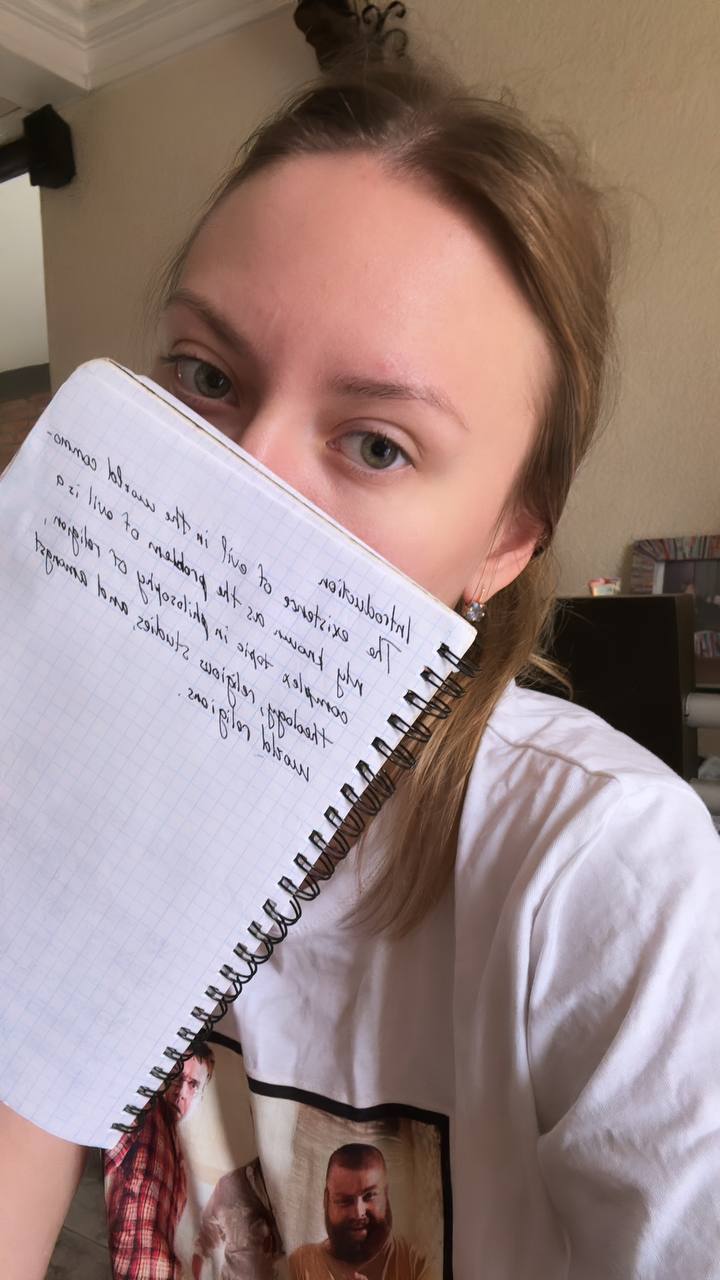 Introduction
The existence of evil in the world commo-
nly known as the problem of evil is a
complex topic in philosophy of religion,
theology, religious studies, and amongst
world religions.